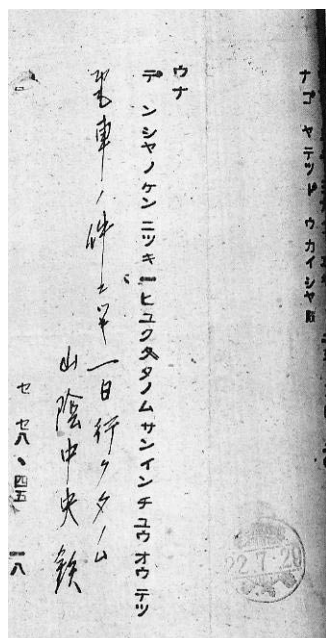 ナゴヤテツドウカイシヤ殿
ウナ
デンシヤノケンニツキ一ヒユクタノムサンインチユウオウテツ
電車ノ件ニツキ一日行クタノム
山陰中央鉄
セ セ八、四五 一八
22.7.20